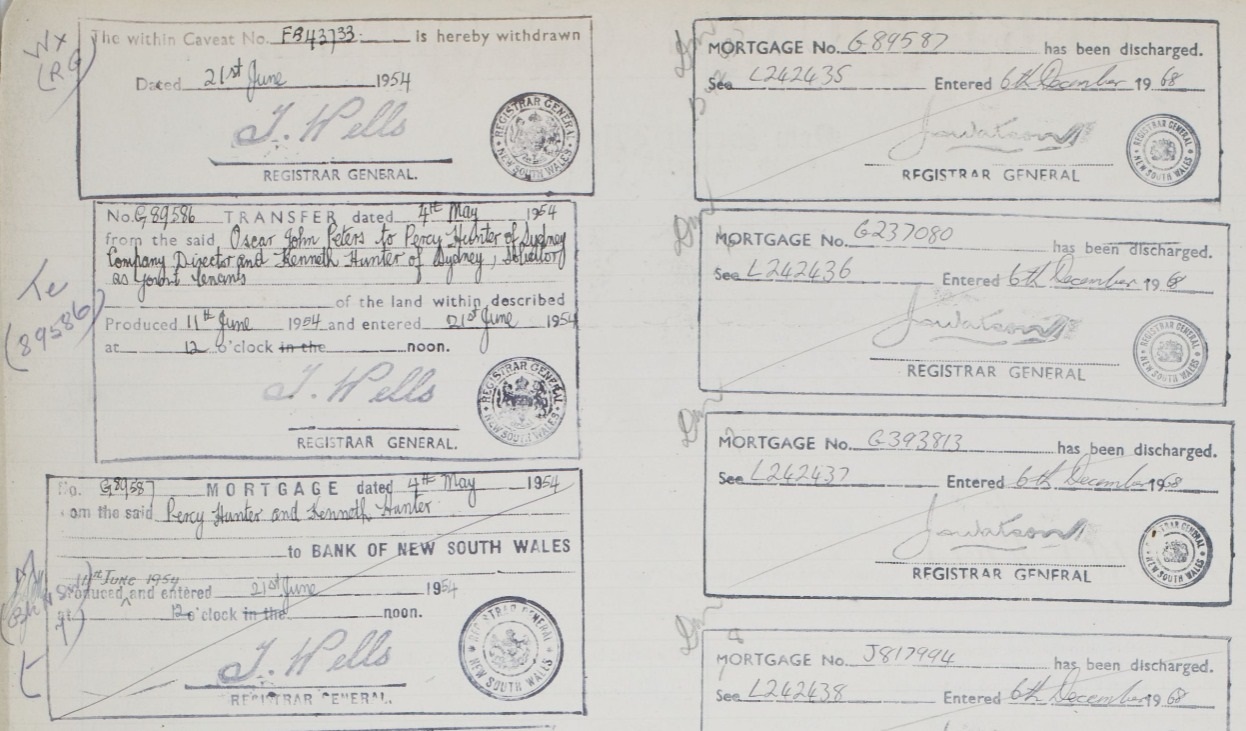 Wx
(RG)
The within Caveat No. FB43733 is hereby withdrawn
Dated 21st June 1954
J. Wells
REGISTRAR GENERAL.
REGISTRAR GENERAL
NEW SOUTH WALES
No. G89586 TRANSFER dated 4th May 1954
from the said Oscar John Peters to Percy Hunter of Sydney
Company Director and Kenneth Hunter of Sydney, Solicitor
as Joint Tenants
of the land within described
Produced 11th June 1954 and entered 21st June 1954
at 12 o'clock in the noon.
J. Wells
REGISTRAR GENERAL.
REGISTRAR GENERAL
NEW SOUTH WALES
Te
(89586)
No. G89587 MORTGAGE dated 4th May 1954
om the said Percy Hunter and Kenneth Hunter
to BANK OF NEW SOUTH WALES
11th JUNE 1954
Produced and entered 21st June 1954
at 12 o'clock in the noon.
J. Wells
REGISTRAR GENERAL.
REGISTRAR GENERAL
NEW SOUTH WALES
MORTGAGE No. G89587 has been discharged.
See L242435 Entered 6th December 1968
Jawatson
REGISTRAR GENERAL
REGISTRAR GENERAL
NEW SOUTH WALES
MORTGAGE No. G237080 has been discharged.
See L242436 Entered 6th December 1968
Jawatson
REGISTRAR GENERAL
REGISTRAR GENERAL
NEW SOUTH WALES
MORTGAGE No. G393813 has been discharged.
See L242437 Entered 6th December 1968
Jawatson
REGISTRAR GENERAL
REGISTRAR GENERAL
NEW SOUTH WALES
MORTGAGE No. J817994 has been discharged.
See L242438 Entered 6th December 1968